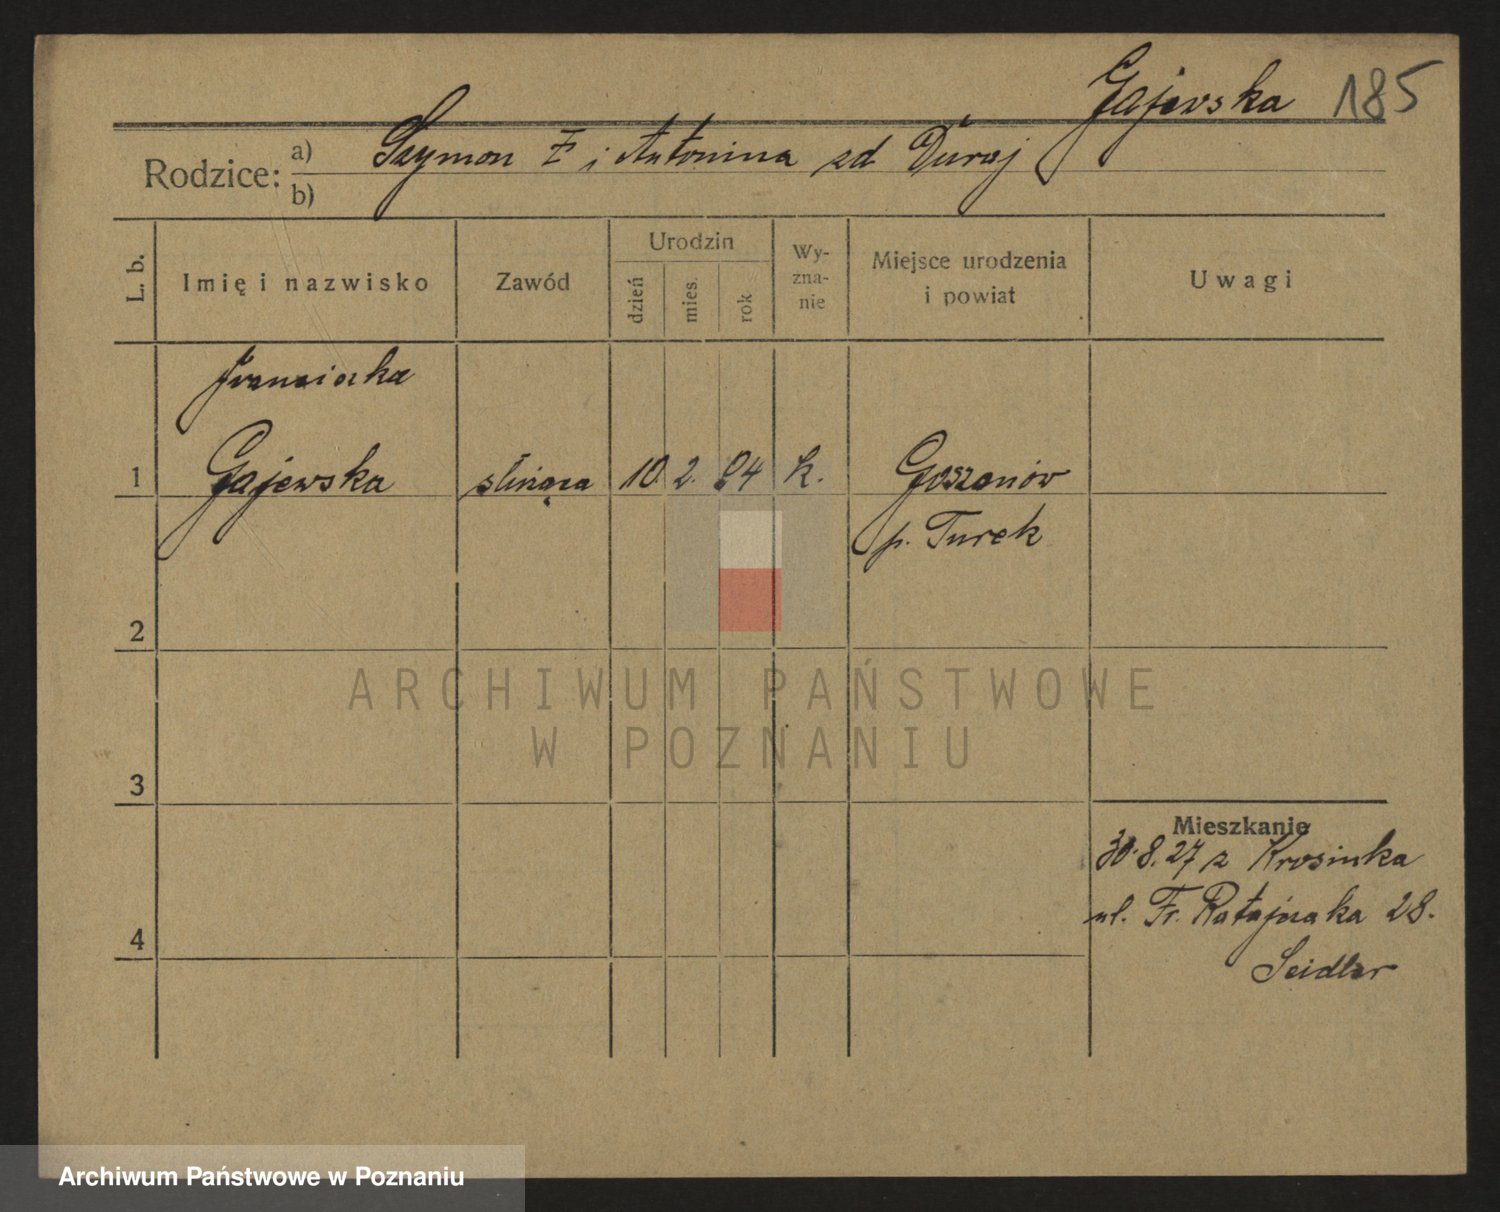 Gajewska 185
Rodzice: a) Szymon Ŧ i Antonina zd Duraj
b)
L. b. Imię i nazwisko Zawód Urodzin dzień mies. rok Wy-zna-nie Miejsce urodzenia i powiat Uwagi
Franciszka
1 Gajewska służąca 10. 2. 04 k. Goszczanów
p. Turek
2
ARCHIWUM PAŃSTWOWE
W POZNANIU
3
Mieszkanie
30.8.27 z Krosinka
ul. Fr. Ratajczaka 28.
4
Seidler
Archiwum Państwowe w Poznaniu